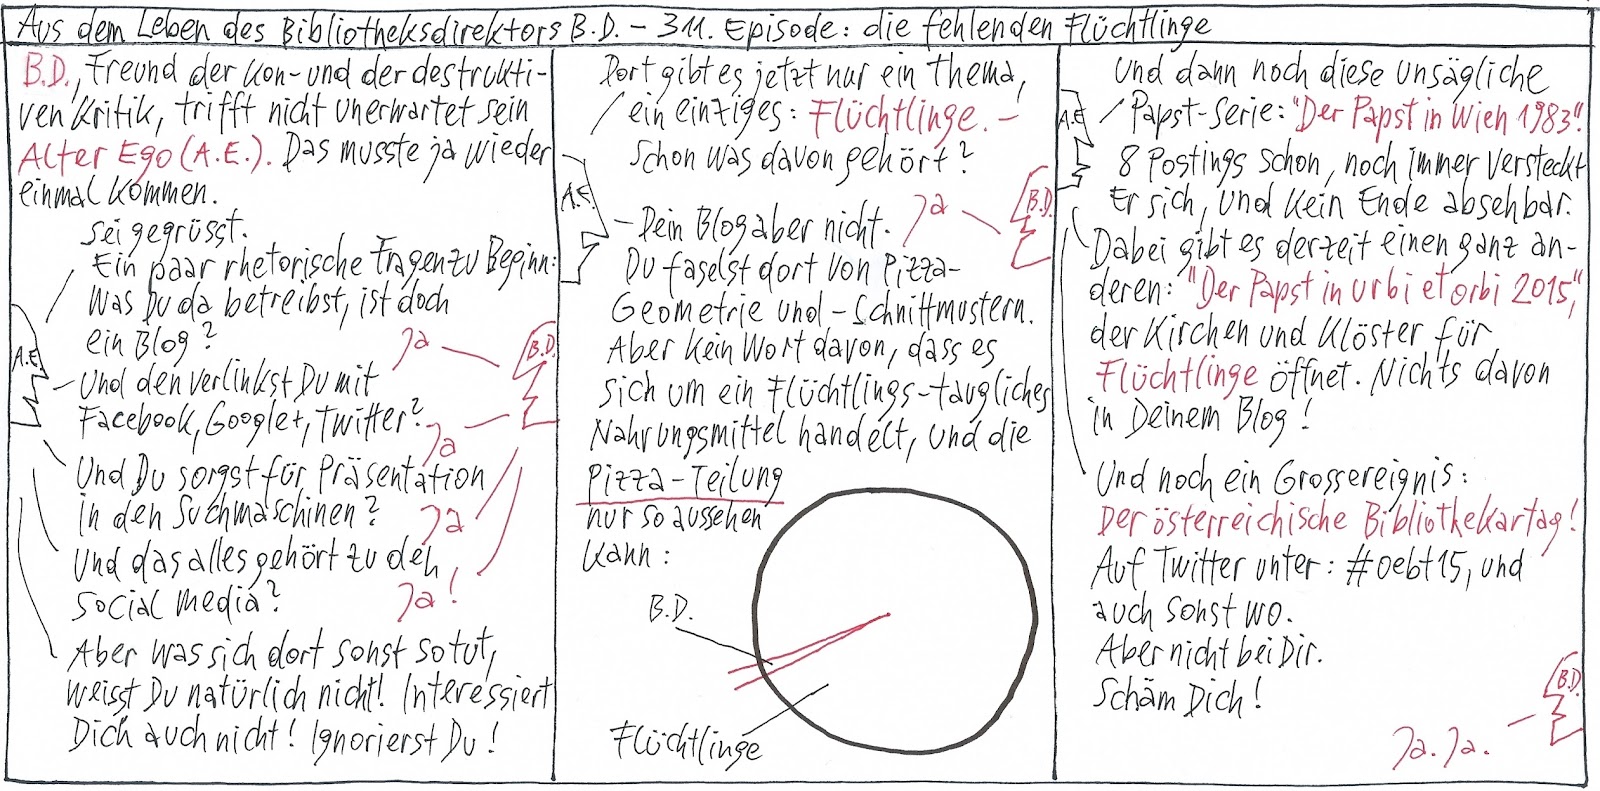 Aus dem Leben des Bibliotheksdirektors B.D. – 311. Episode: die fehlenden Flüchtlinge
B.D., Freund der kon- und der destrukti-
ven Kritik, trifft nicht unerwartet sein
Alter Ego (A.E.). Das musste ja wieder
einmal kommen.
Sei gegrüsst.
Ein paar rhetorische Fragen zu Beginn:
Was Du da betreibst, ist doch
ein Blog?
Ja
B.D.
A.E.
Und den verlinkst Du mit
Facebook, Google+, Twitter?
Ja
Und Du sorgst für Präsentation
in den Suchmaschinen?
Ja
Und das alles gehört zu den
Social Media?
Ja!
Aber was sich dort sonst so tut,
weisst Du natürlich nicht! Interessiert
Dich auch nicht! Ignorierst Du!
Dort gibt es jetzt nur ein Thema,
ein einziges: Flüchtlinge. –
Schon was davon gehört?
A.E.
Ja
B.D.
Dein Blog aber nicht.
Du faselst dort von Pizza-
Geometrie und -Schnittmustern.
Aber kein Wort davon, dass es
sich um ein Flüchtlings-taugliches
Nahrungsmittel handelt, und die
Pizza-Teilung
nur so aussehen
kann:
B.D.
Flüchtlinge
Und dann noch diese unsägliche
Papst-Serie: "Der Papst in Wien 1983".
A.E.
8 Postings schon, noch immer versteckt
Er sich, und kein Ende absehbar.
Dabei gibt es derzeit einen ganz an-
deren: "Der Papst in urbi et orbi 2015",
der Kirchen und Klöster für
Flüchtlinge öffnet. Nichts davon
in Deinem Blog!
Und noch ein Grossereignis:
Der österreichische Bibliothekartag!
Auf Twitter unter: #oebt15, und
auch sonst wo.
Aber nicht bei Dir.
Schäm Dich!
B.D.
Ja. Ja.